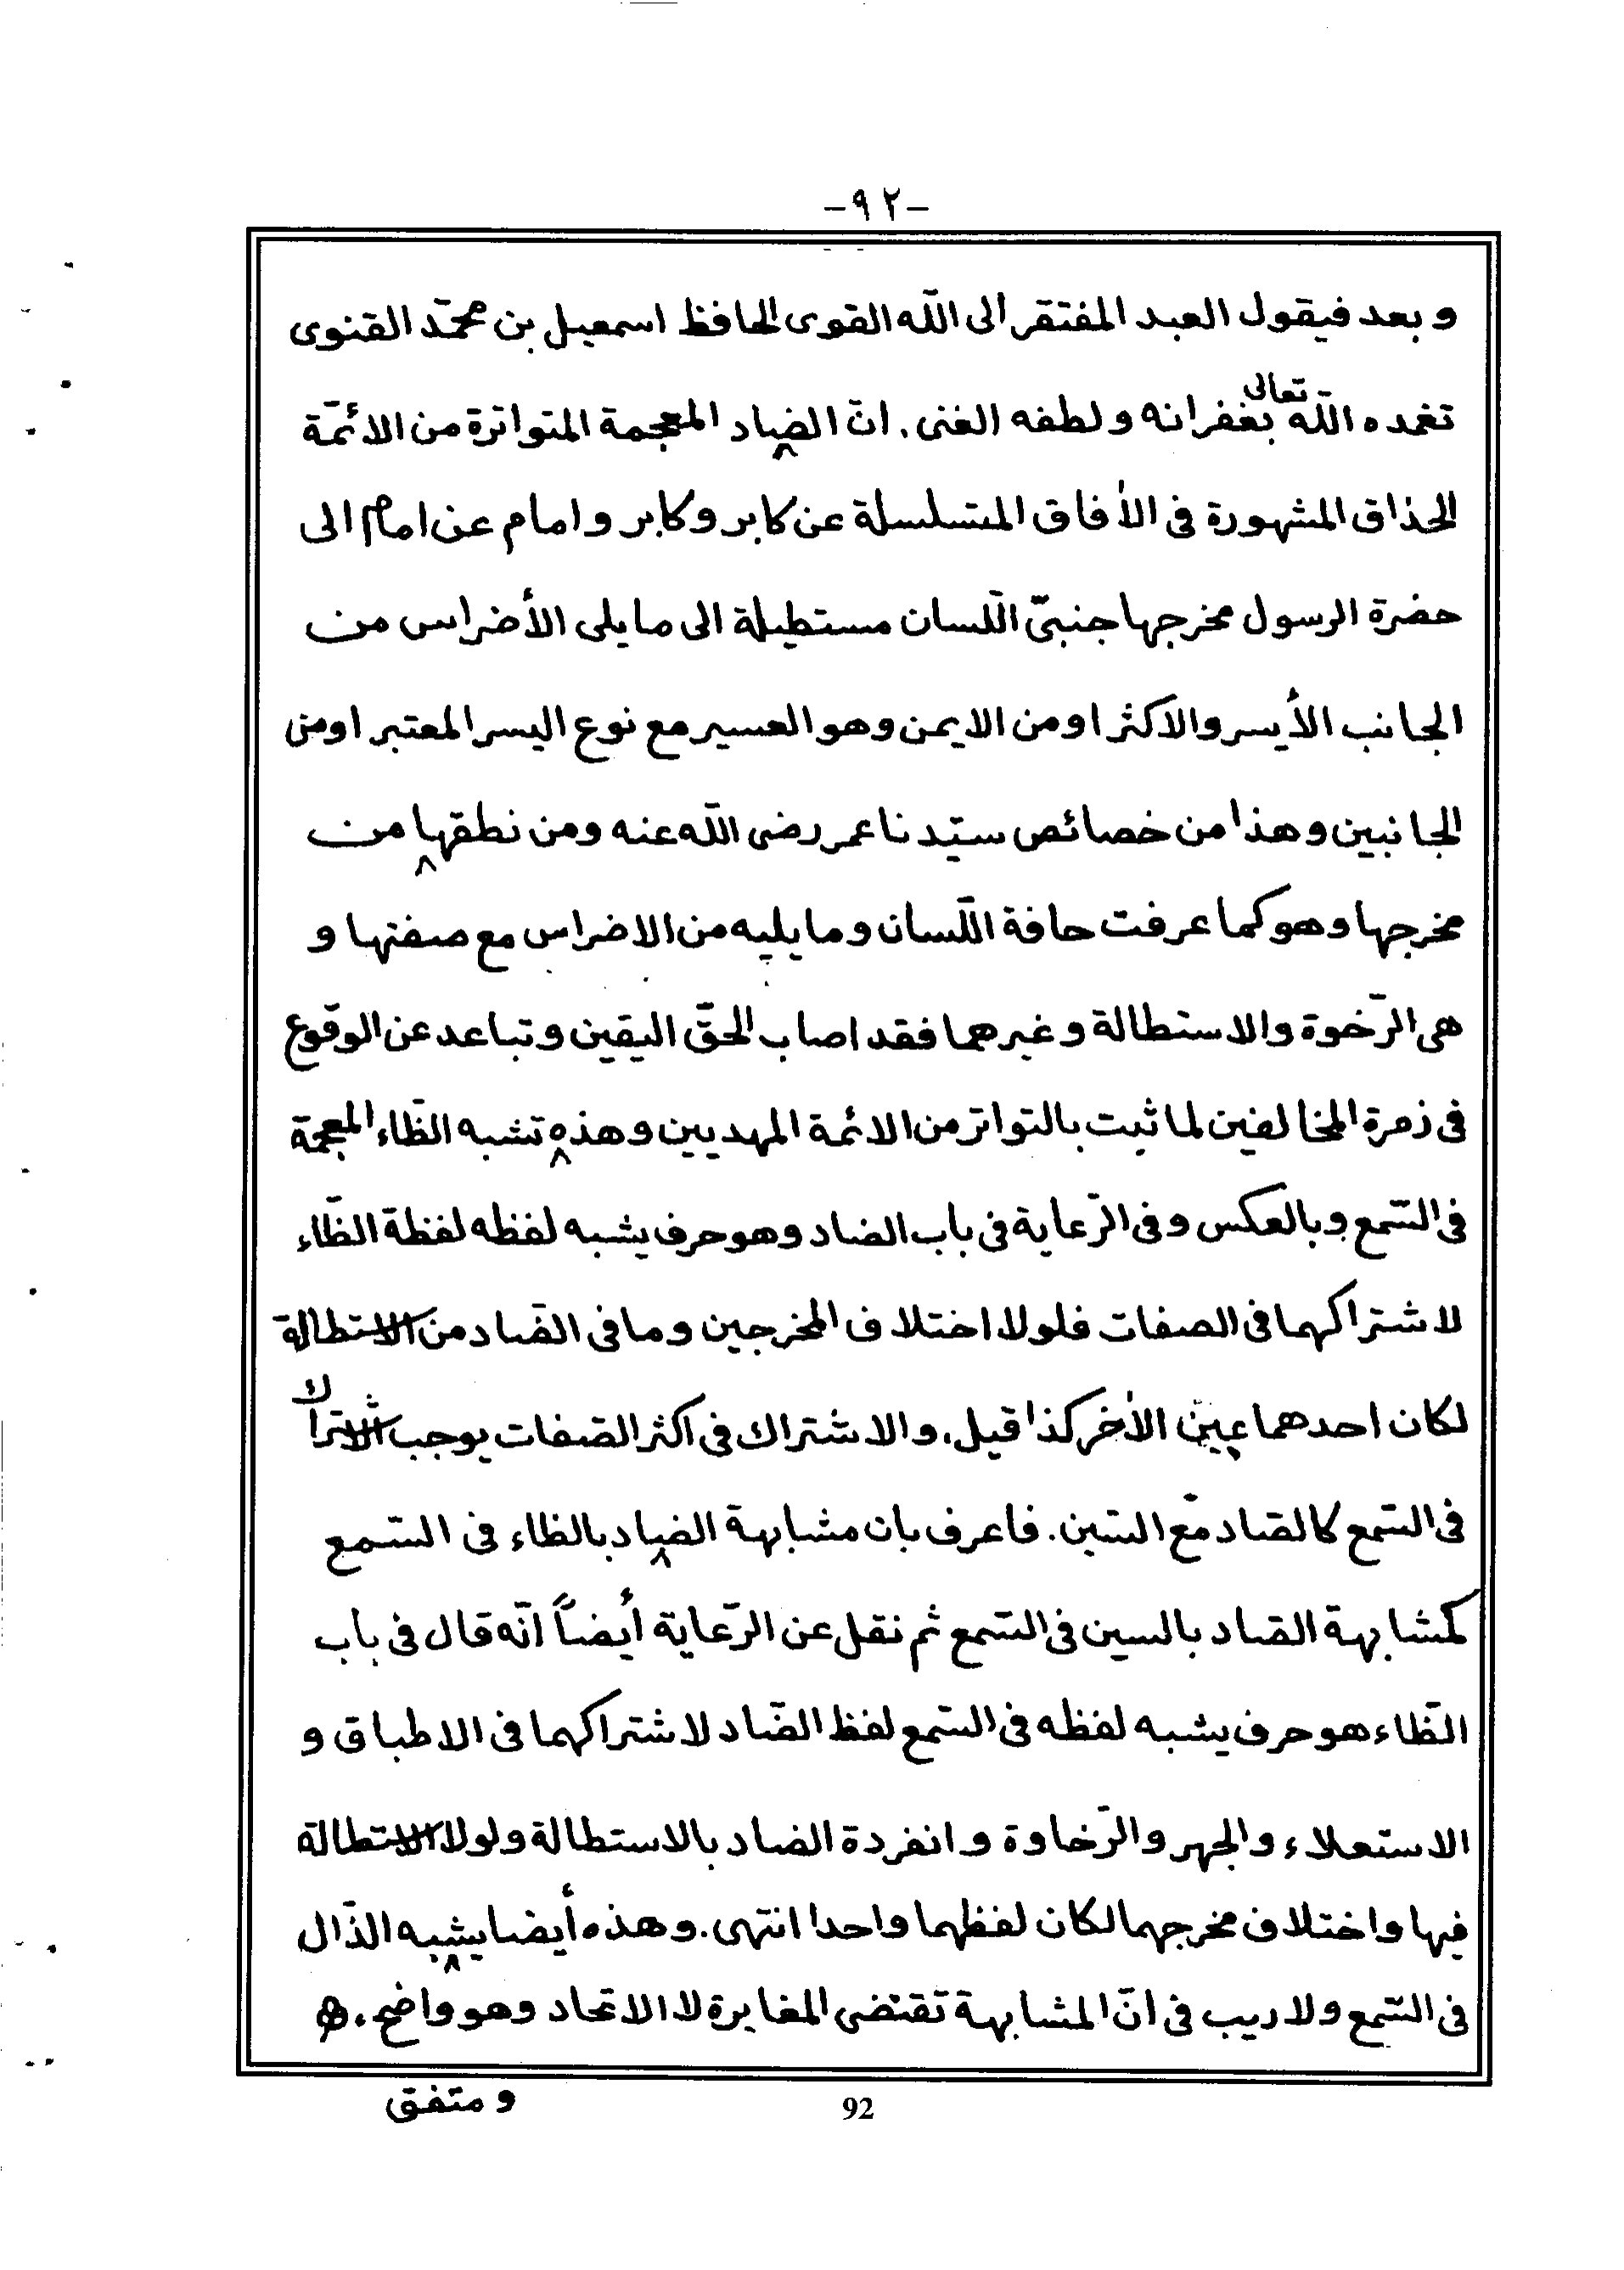 -٩٢-
و بعد فيقول العبد المفتقر الى الله القوى الحافظ اسمعيل بن محمّد القنوى
تغمده الله تعالى بغفرانه و لطفه الغنى. انّ الضاد المعجمة المتواترة من الائمّة
الحذاق المشهورة فى الأفاق المتسلسلة عن كابر و كابر و امام عن امام الى
حضرة الرسول مخرجها جنبىّ اللّسان مستطيلة الى ما يلى الأضراس من
الجانب الأيسر والاكثر او من الايمن وهو العسير مع نوع اليسر المعتبر او من
الجانبين و هذا من خصائص سيّدنا عمر رضى الله عنه ومن نطقها من
مخرجها وهو كما عرفت حافة اللّسان وما يليه من الاضراس مع صفتها و
هى الرّخوة والاستطالة و غيرهما فقد اصاب الحقّ اليقين و تباعد عن الوقوع
فى زمرة المخالفين لما ثبت بالتواتر من الائمة المهديين و هذه تشبه الظّاء المعجمة
فى السّمع و بالعكس و فى الرّعاية فى باب الضاد وهو حرف يشبه لفظه لفظة الظّاء
لاشتراكهما فى الصفات فلولا اختلاف المخرجين وما فى الضّاد من الاستطالة
لكان احدهما عين الأخر كذا قيل. والاشتراك فى اكثر الصّفات يوجب الاشتراك
فى السّمع كالصّاد مع السّين. فاعرف بان مشابهة الضاد بالظاء فى السّمع
كمشابهة الصّاد بالسين فى السّمع ثم نقل عن الرّعاية أيضاً انّه قال فى باب
الظّاء هو حرف يشبه لفظه فى السّمع لفظ الضّاد لاشتراكهما فى الاطباق و
الاستعلاء والجهر والرّخاوة و انفردة الضاد بالاستطالة ولولا الاستطالة
فيها واختلاف مخرجهما لكان لفظهما واحدا انتهى. و هذه أيضا يشبه الذّال
فى السّمع ولا ريب فى انّ المشابهة تقتضى المغايرة لا الاتحاد وهو واضح.
و متفق
92